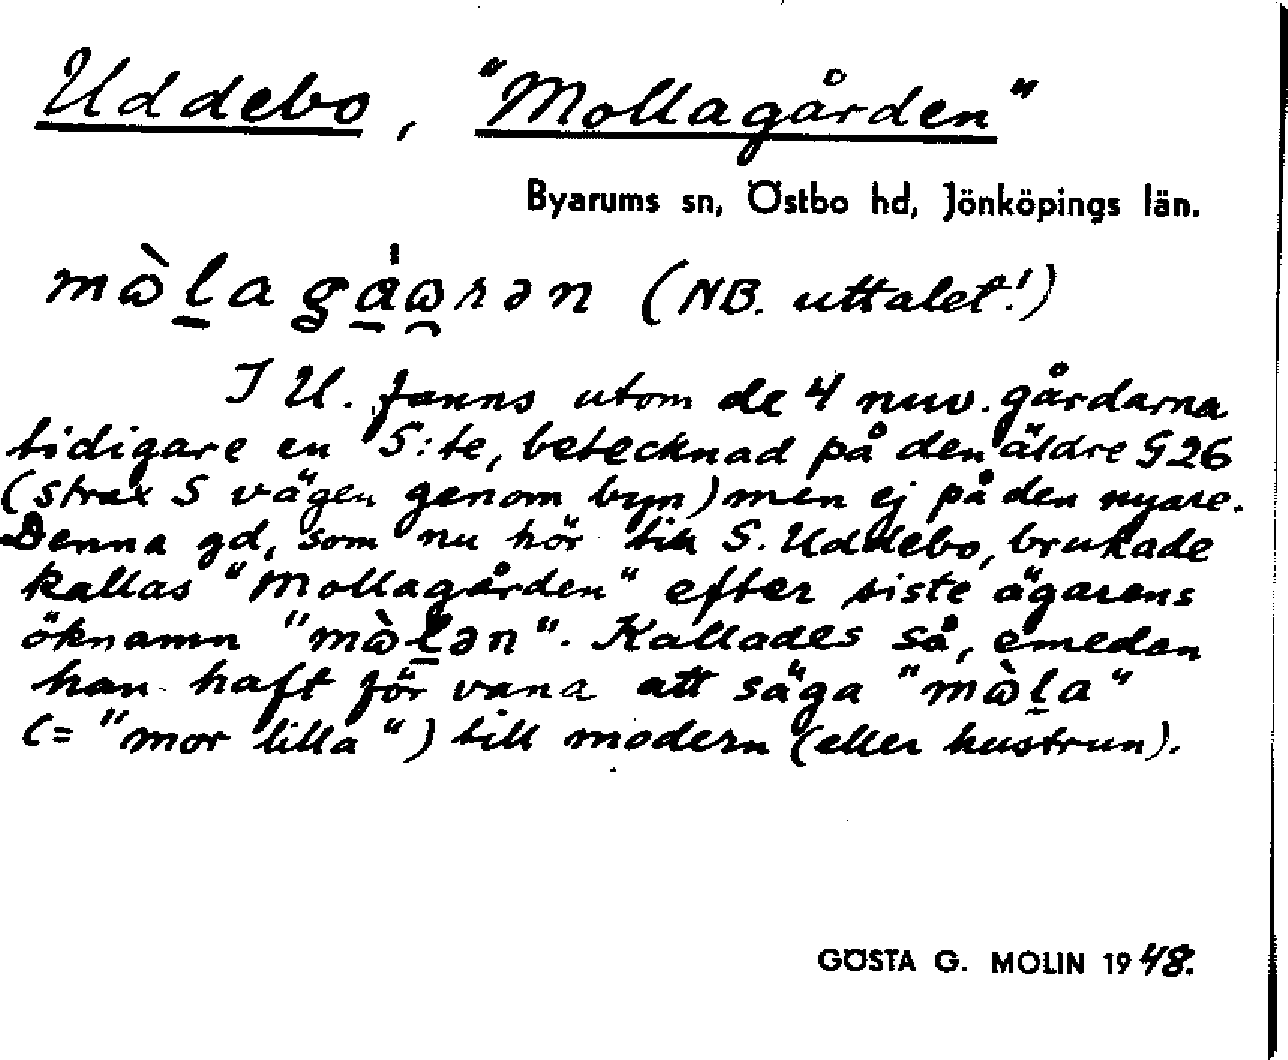 Uddebo, "Mollagården"
Byarums sn, Östbo hd, Jönköpings län.
(NB. uttalet!)
I U. fanns utom de 4 nuv. gårdarna
tidigare en 5:te, betecknad på den äldre G26
(strax S vägen genom byn) men ej på den nyare.
Denna gd, som nu hör till S. Uddebo, brukade
kallas "Mollagården" efter siste ägarens
öknamn "mɷ̀l̲ən". Kallades så, emedan
han haft för vana att säga "mɷ̀l̲a"
(= "mor lilla") till modern (eller hustrun).
GÖSTA G. MOLIN 1948.